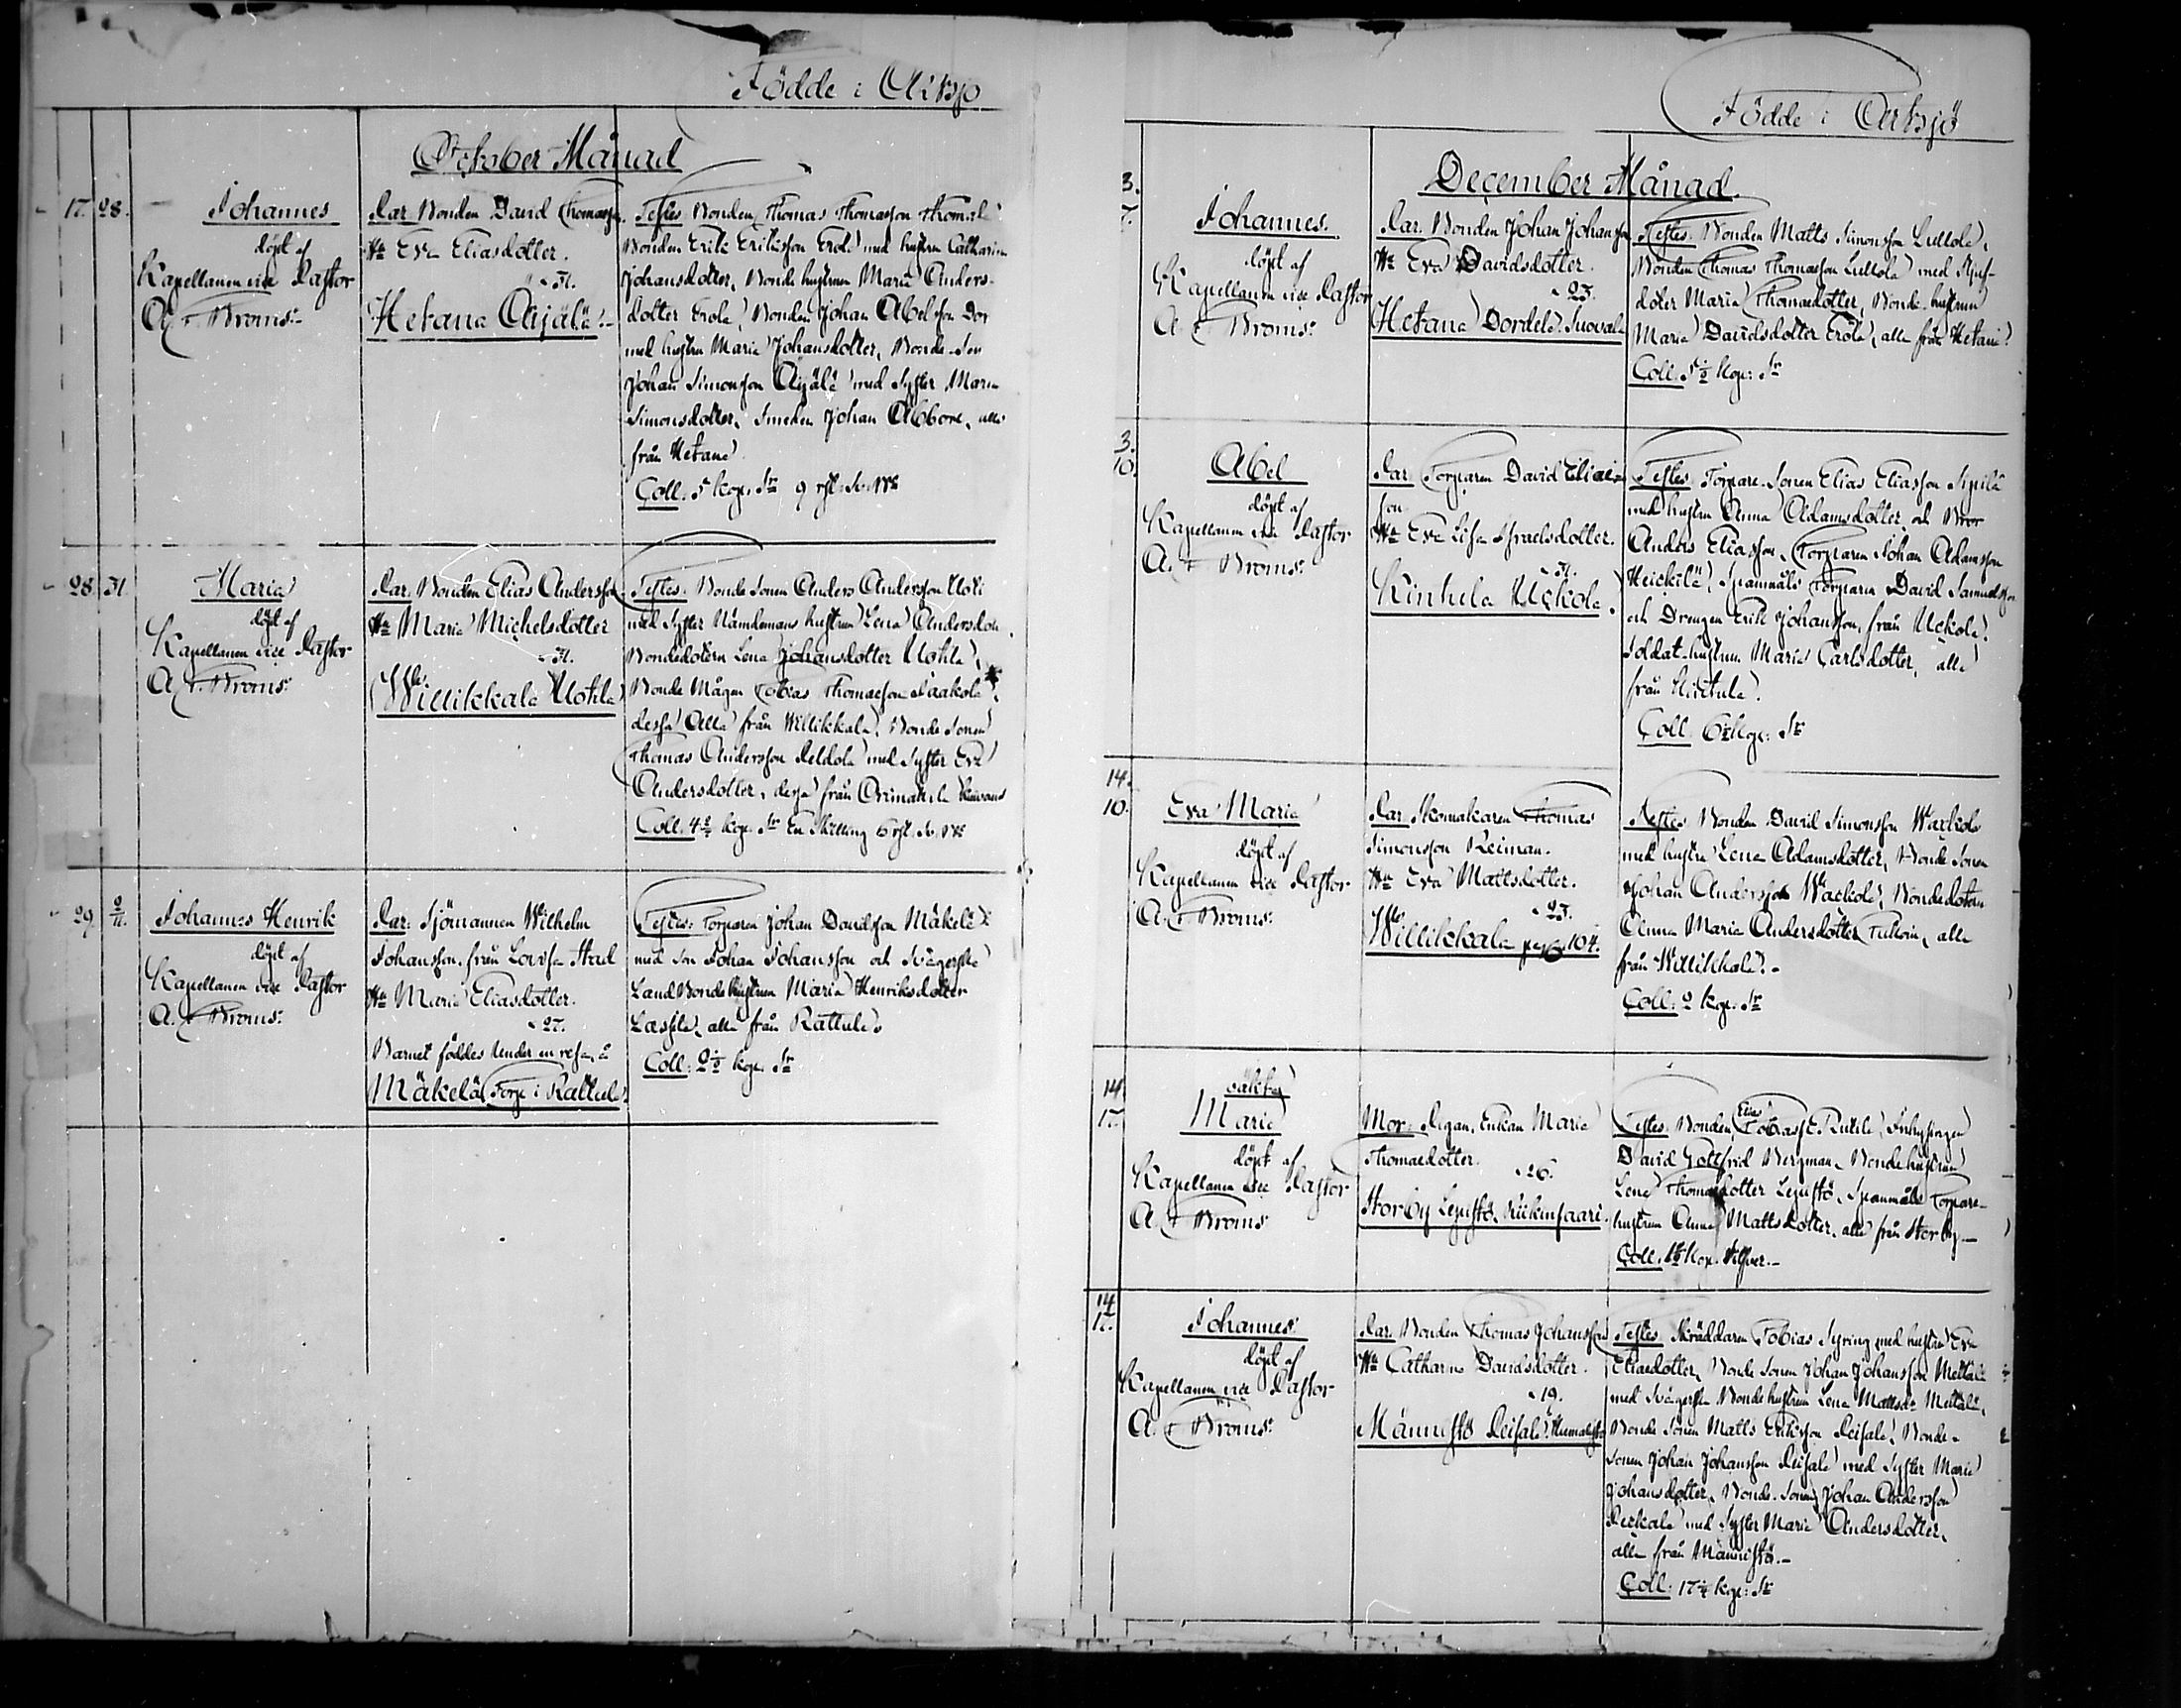 Födde i Artsjö
October Månad
17. 28.
Johannes
döpt af
Kapellanen vice Pastor
A. F. Broms.
Par. Bonden David Thomasson
Hu Eva Eliasdotter.
" 31.
Hetana Äijälä.
Testes. Bonden Thomas Thomasson
Bonden Erik Eriksson Erola med hustru Catharina
Johansdotter, Bonde hustrun Maria Anders-
dotter Erola, Bonden Johan Abelsson
med hustru Maria Johansdotter, Bonde-Son
Johan Simonsson Äijälä med Syster Maria
Simonsdotter, Smeden Johan Abbore, alla
från Hetana
Coll. 5 kop. Sr 9 rst.
28 31.
Maria
döpt af
Kapellanen vice Pastor
A. F. Broms.
Par. Bonden Elias Andersson
Hu Maria Michelsdotter
" 31.
Willikkala Uotila
Testes. Bonde Sonen Anders Andersson Uoti
med Syster Nämdemans hustrun Lena Andersdotr
Bondedottern Lena Johansdotter Uotila,
Bonde Mågen Tobias Thomasson Jaakola,
dessa alla från Willikkala, Bonde Sonen
Thomas Andersson Peldola med Syster Eva
Andersdotter, dessa från Orimattila
Coll. 4 kop. Sr En Skilling 6 rst.
29. 2/11.
Johannes Henrik
döpt af
Kapellanen vice Pastor
A. F. Broms.
Par: Sjömannen Wilhelm
Johansson, från Lovisa Stad
Hu Maria Eliasdotter.
" 27.
Barnet föddes under en resa, å
Mäkelä Torp i Ratula.
Testes: Torparen Johan Davidsson Mäkelä
med Son Johan Johansson och Svägerska
LandBonde hustrun Maria Henriksdotter
Lassila, alla från Rattula.
Coll: 2½ kop. Sr
Födde i Artsjö
December Månad
3.
7.
Johannes.
döpt af
Kapellanen vice Pastor
A. F. Broms.
Par. Bonden Johan Johansson
Hu Eva Davidsdotter.
" 23.
Hetana Dordela Suovala
Testes. Bonden Matts Simonsson Lullola,
Bonden Thomas Thomasson Lullola med Styf-
doter Maria Thomaedotter, Bonde-hustrun
Maria Davidsdotter Erola, alla från Hetana.
Coll. 5½ kop: Sr
3.
10.
Abel
döpt af
Kapellanen vice Pastor
A. F. Broms.
Par. Torparen David Elias
son
Hu Eva Lisa Israelsdotter.
" 31.
Kinttula Uckola.
Testes. Torpare-Sonen Elias Eliasson Sipilä
med hustru Anna Adamsdotter och Bror
Anders Eliasson, Torparen Johan Adamsson
Heickilä, Spannmåls Torparen David Samuelsson
och Drengen Erik Johansson, från Uckola.
Soldat-hustrun Maria Carlsdotter, alla
från Kinttula.
Coll. 6 kop: Sr
14.
10.
Eva Maria
döpt af
Kapellanen vice Pastor
A. F. Broms.
Par. Skomakaren Thomas
Simonsson Reiman.
Hu Eva Mattsdotter.
" 23.
Willikkala pag 104.
Testes. Bonden David Simonsson Wackola
med hustru Lena Adamsdotter, Bonde Sonen
Johan Andersson Wackola, Bondedottern
Anna Maria Andersdotter, alla
från Willikkala.
Coll: 2 kop. Sr
14.
17.
oäkta
Maria
döpt af
Kapellanen vice Pastor
A. F. Broms.
Mor: Pigan, Enkan Maria
Thomaedotter.
" 26.
Storby Lepistö,
Testes. Bonden Elias Tobiass: Rutila, Inhysingen
David Gottfrid Bergman, Bonde hustrun
Lena Thomaedotter Lepistö, Spannmåls Torpare-
hustrun Anna Mattsdotter, alla från Storby.
Coll. kop. Silfver.
14.
17.
Johannes.
döpt af
Kapellanen vice Pastor
A. F. Broms.
Par. Bonden Thomas Johansson
Hu Catharina Davidsdotter.
" 19.
Männistö Peisala.
Testes. Skräddaren Tobias Syring med hustru Eva
Eliaedotter, Bonde Sonen Johan Johansson Mettälä
med Svägerska Bonde hustrun Lena Mattsdr Mettälä,
Bonde Sonen Matts Eriksson Peisala, Bonde-
Sonen Johan Johansson Peisala med Syster Maria
Johansdotter, Bonde-Sonen Johan Andersson
med Syster Maria Andersdotter,
alla från Männistö.
Coll: 17 kop: Sr